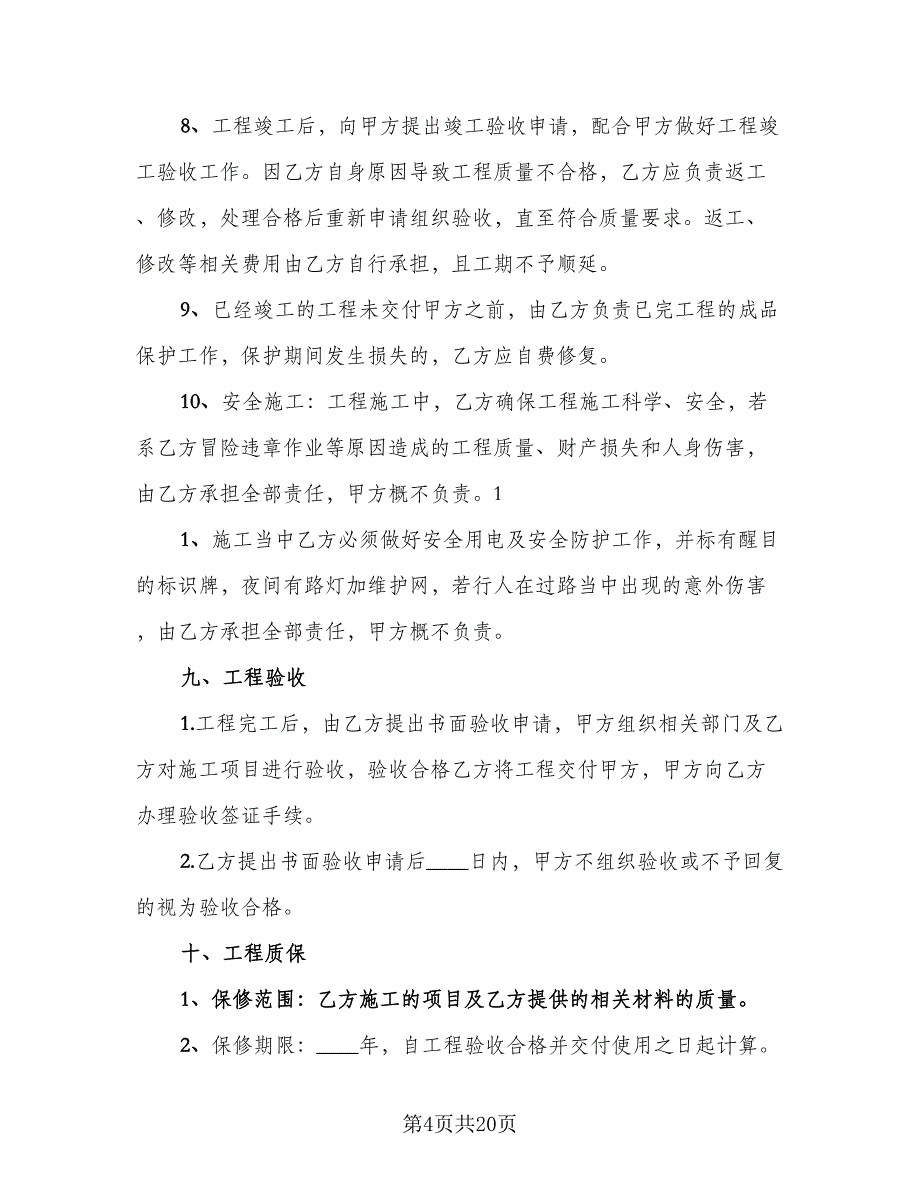 8、工程竣工后，向甲方提出竣工验收申请，配合甲方做好工程竣
工验收工作。因乙方自身原因导致工程质量不合格，乙方应负责返工
、修改，处理合格后重新申请组织验收，直至符合质量要求。返工、
修改等相关费用由乙方自行承担，且工期不予顺延。
9、已经竣工的工程未交付甲方之前，由乙方负责已完工程的成品
保护工作，保护期间发生损失的，乙方应自费修复。
10、安全施工：工程施工中，乙方确保工程施工科学、安全，若
系乙方冒险违章作业等原因造成的工程质量、财产损失和人身伤害，
由乙方承担全部责任，甲方概不负责。1
1、施工当中乙方必须做好安全用电及安全防护工作，并标有醒目
的标识牌，夜间有路灯加维护网，若行人在过路当中出现的意外伤害
，由乙方承担全部责任，甲方概不负责。
九、工程验收
1.工程完工后，由乙方提出书面验收申请，甲方组织相关部门及乙
方对施工项目进行验收，验收合格乙方将工程交付甲方，甲方向乙方
办理验收签证手续。
2.乙方提出书面验收申请后____日内，甲方不组织验收或不予回复
的视为验收合格。
十、工程质保
1、保修范围：乙方施工的项目及乙方提供的相关材料的质量。
2、保修期限：____年，自工程验收合格并交付使用之日起计算。
第4页共20页